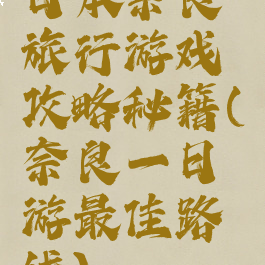 日本奈良
旅行游戏
攻略秘籍(
奈良一日
游最佳路
线)